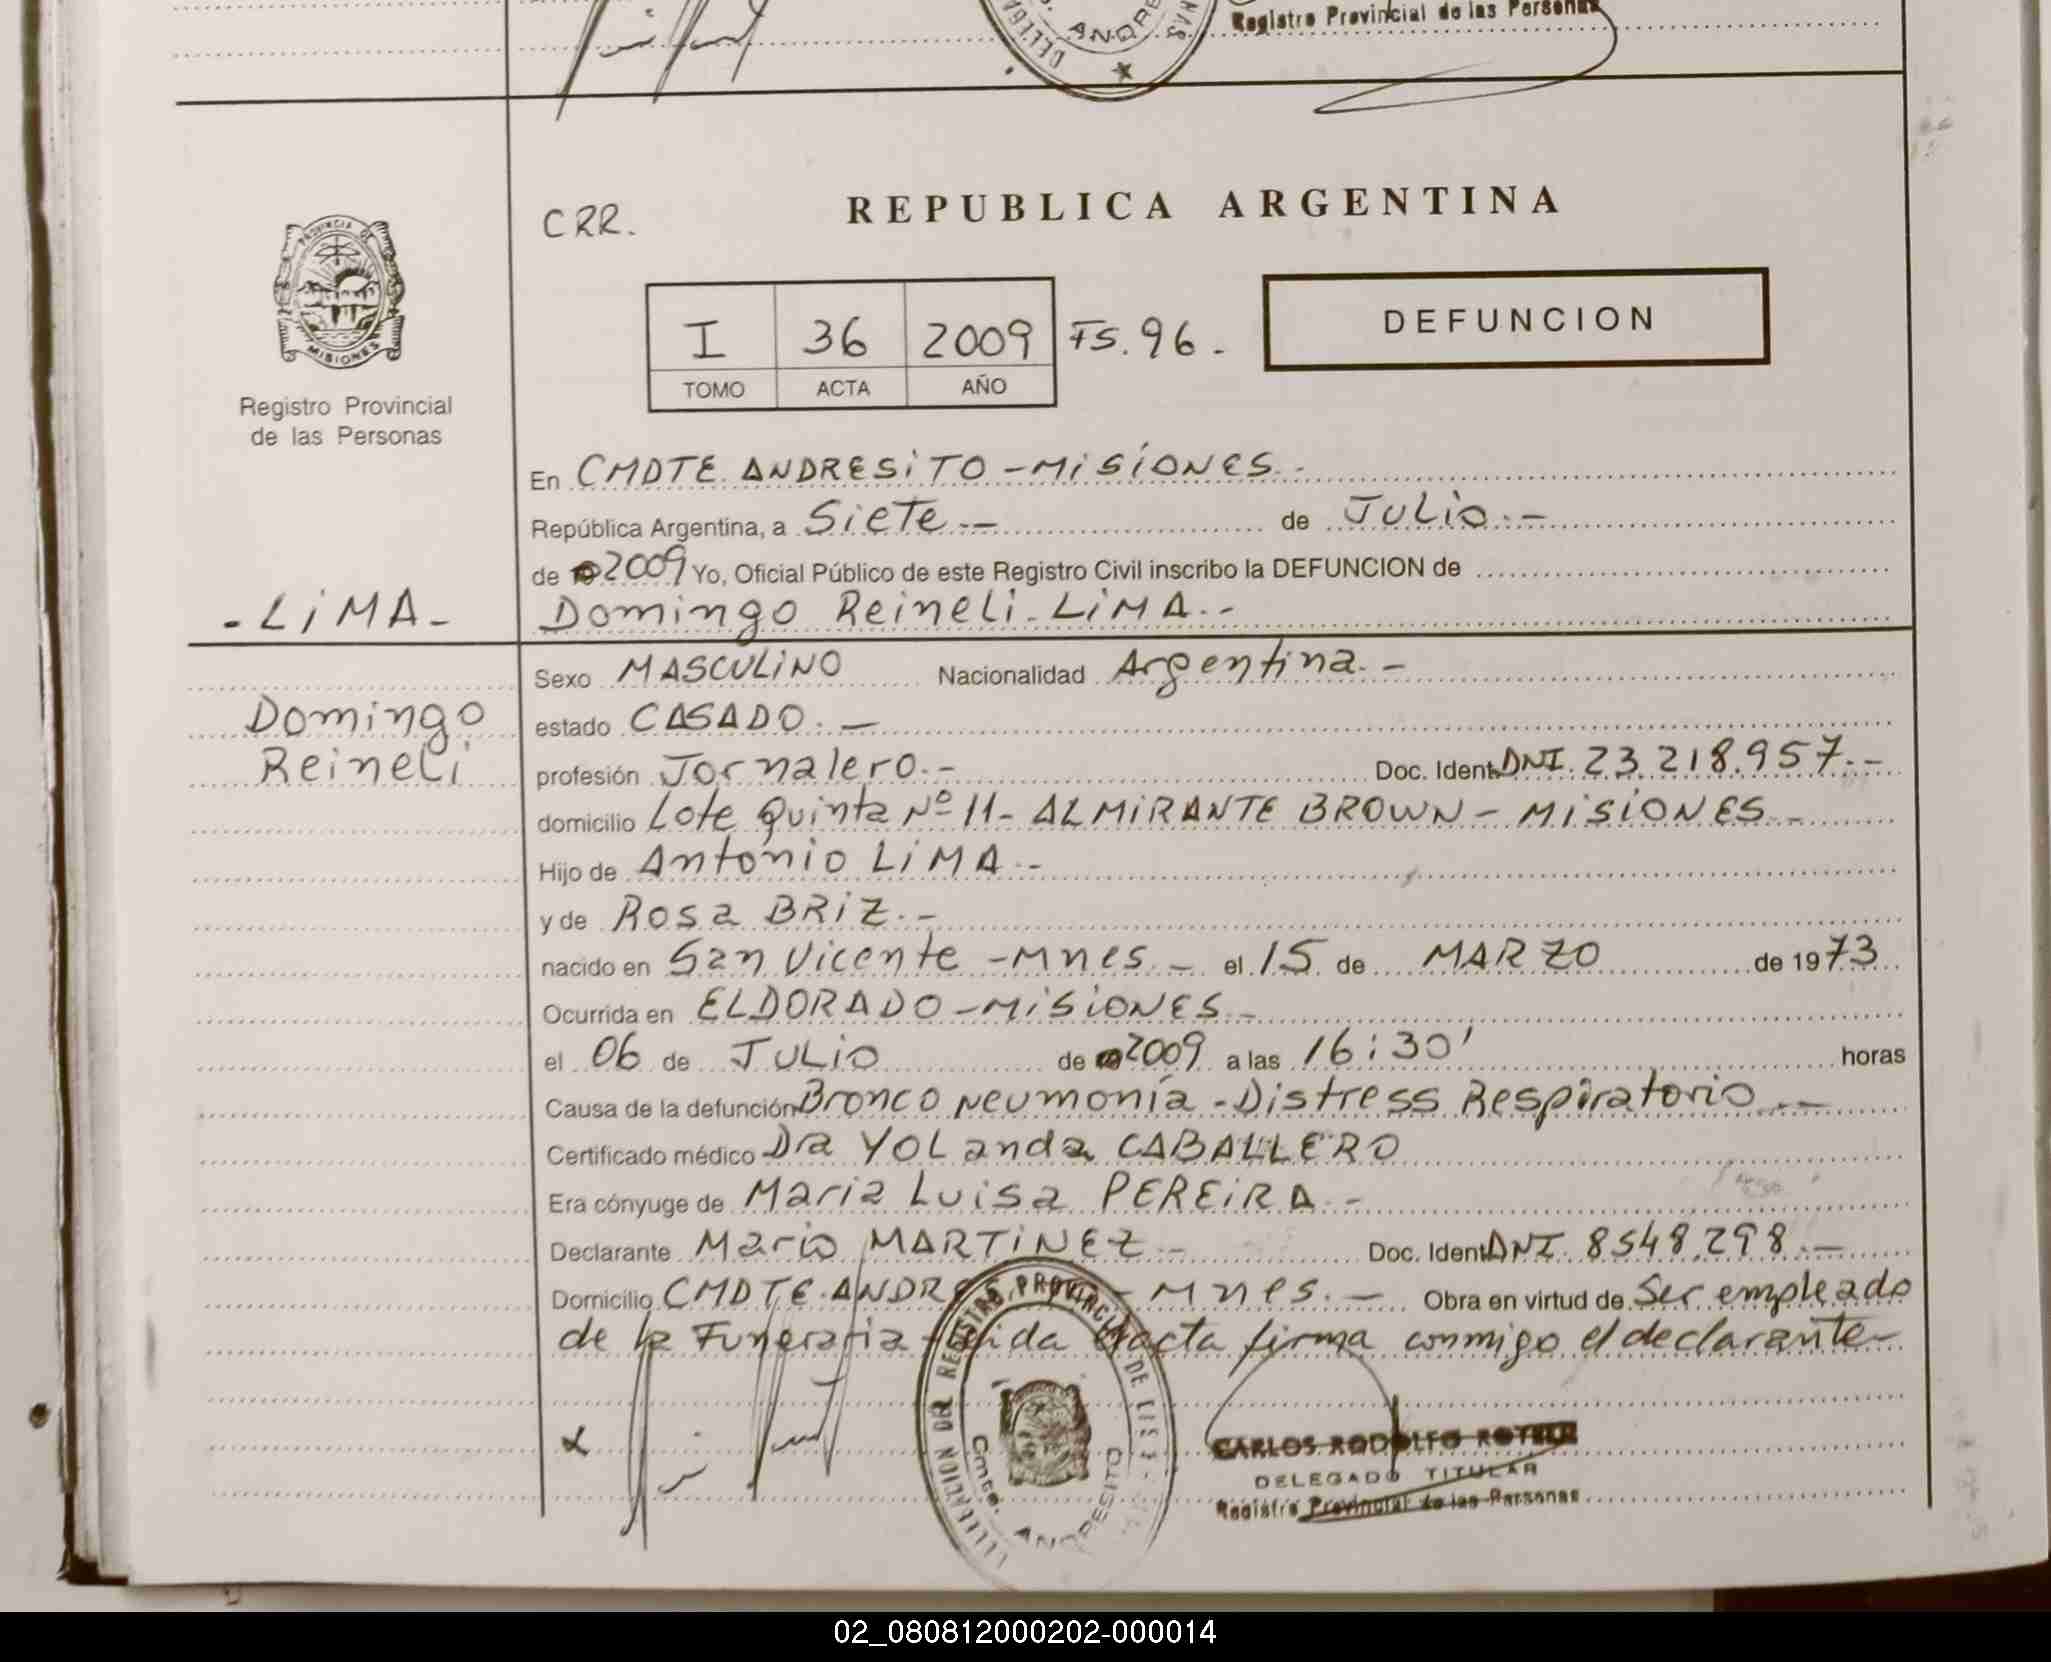 Registro Provincial de las Personas
ANDRE
CRR.
REPUBLICA ARGENTINA
PROVINCIA DE
MISIONES
Registro Provincial
de las Personas
I 36 2009 FS. 96.-
TOMO ACTA AÑO
DEFUNCION
En CMDTE ANDRESITO - MISIONES.-
República Argentina, a Siete.- de JULIO.-
de 2009 Yo, Oficial Público de este Registro Civil inscribo la DEFUNCION de
- LIMA -
Domingo Reineli LIMA.-
Domingo
Reineli
Sexo MASCULINO Nacionalidad Argentina.-
estado CASADO.-
profesión Jornalero.- Doc. Ident. DNI. 23.218.957.-
domicilio Lote Quinta Nº 11 - ALMIRANTE BROWN - MISIONES.-
Hijo de Antonio LIMA.-
y de Rosa BRIZ.-
nacido en San Vicente - Mnes.- el 15 de MARZO de 1973
Ocurrida en ELDORADO - MISIONES.-
el 06 de JULIO de 2009 a las 16:30' horas
Causa de la defunción Bronco Neumonía - Distress Respiratorio.-
Certificado médico Dra YOLanda CABALLERO
Era cónyuge de Maria Luisa PEREIRA.-
Declarante Mario MARTINEZ.- Doc. Ident. DNI. 8548.298.-
Domicilio CMDTE ANDRES - Mnes.- Obra en virtud de Ser empleado
de la Funeraria - Leida el acta firma conmigo el declarante-
DELEGACION DEL REGISTRO PROVINCIAL DE LAS
Cmte. ANDRESITO
CARLOS RODOLFO
DELEGADO TITULAR
Registro Provincial de las Personas
02_080812000202-000014